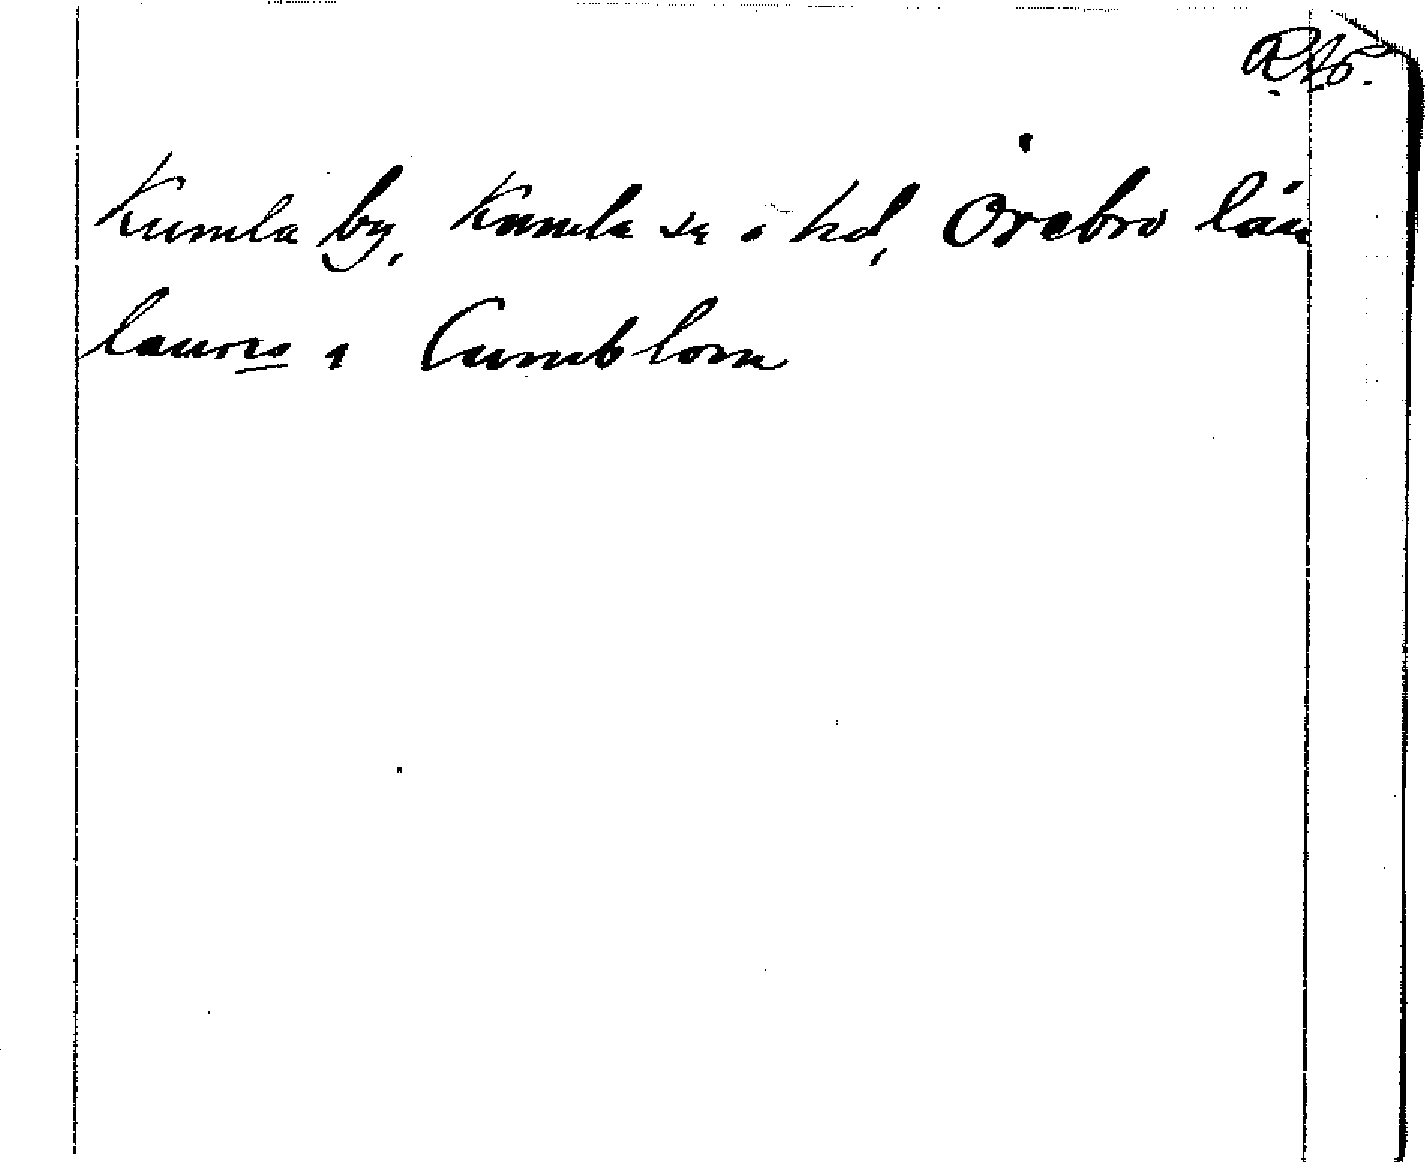 Kumla by, Kumla sn o. hd, Örebro län
laurens i Cumblom